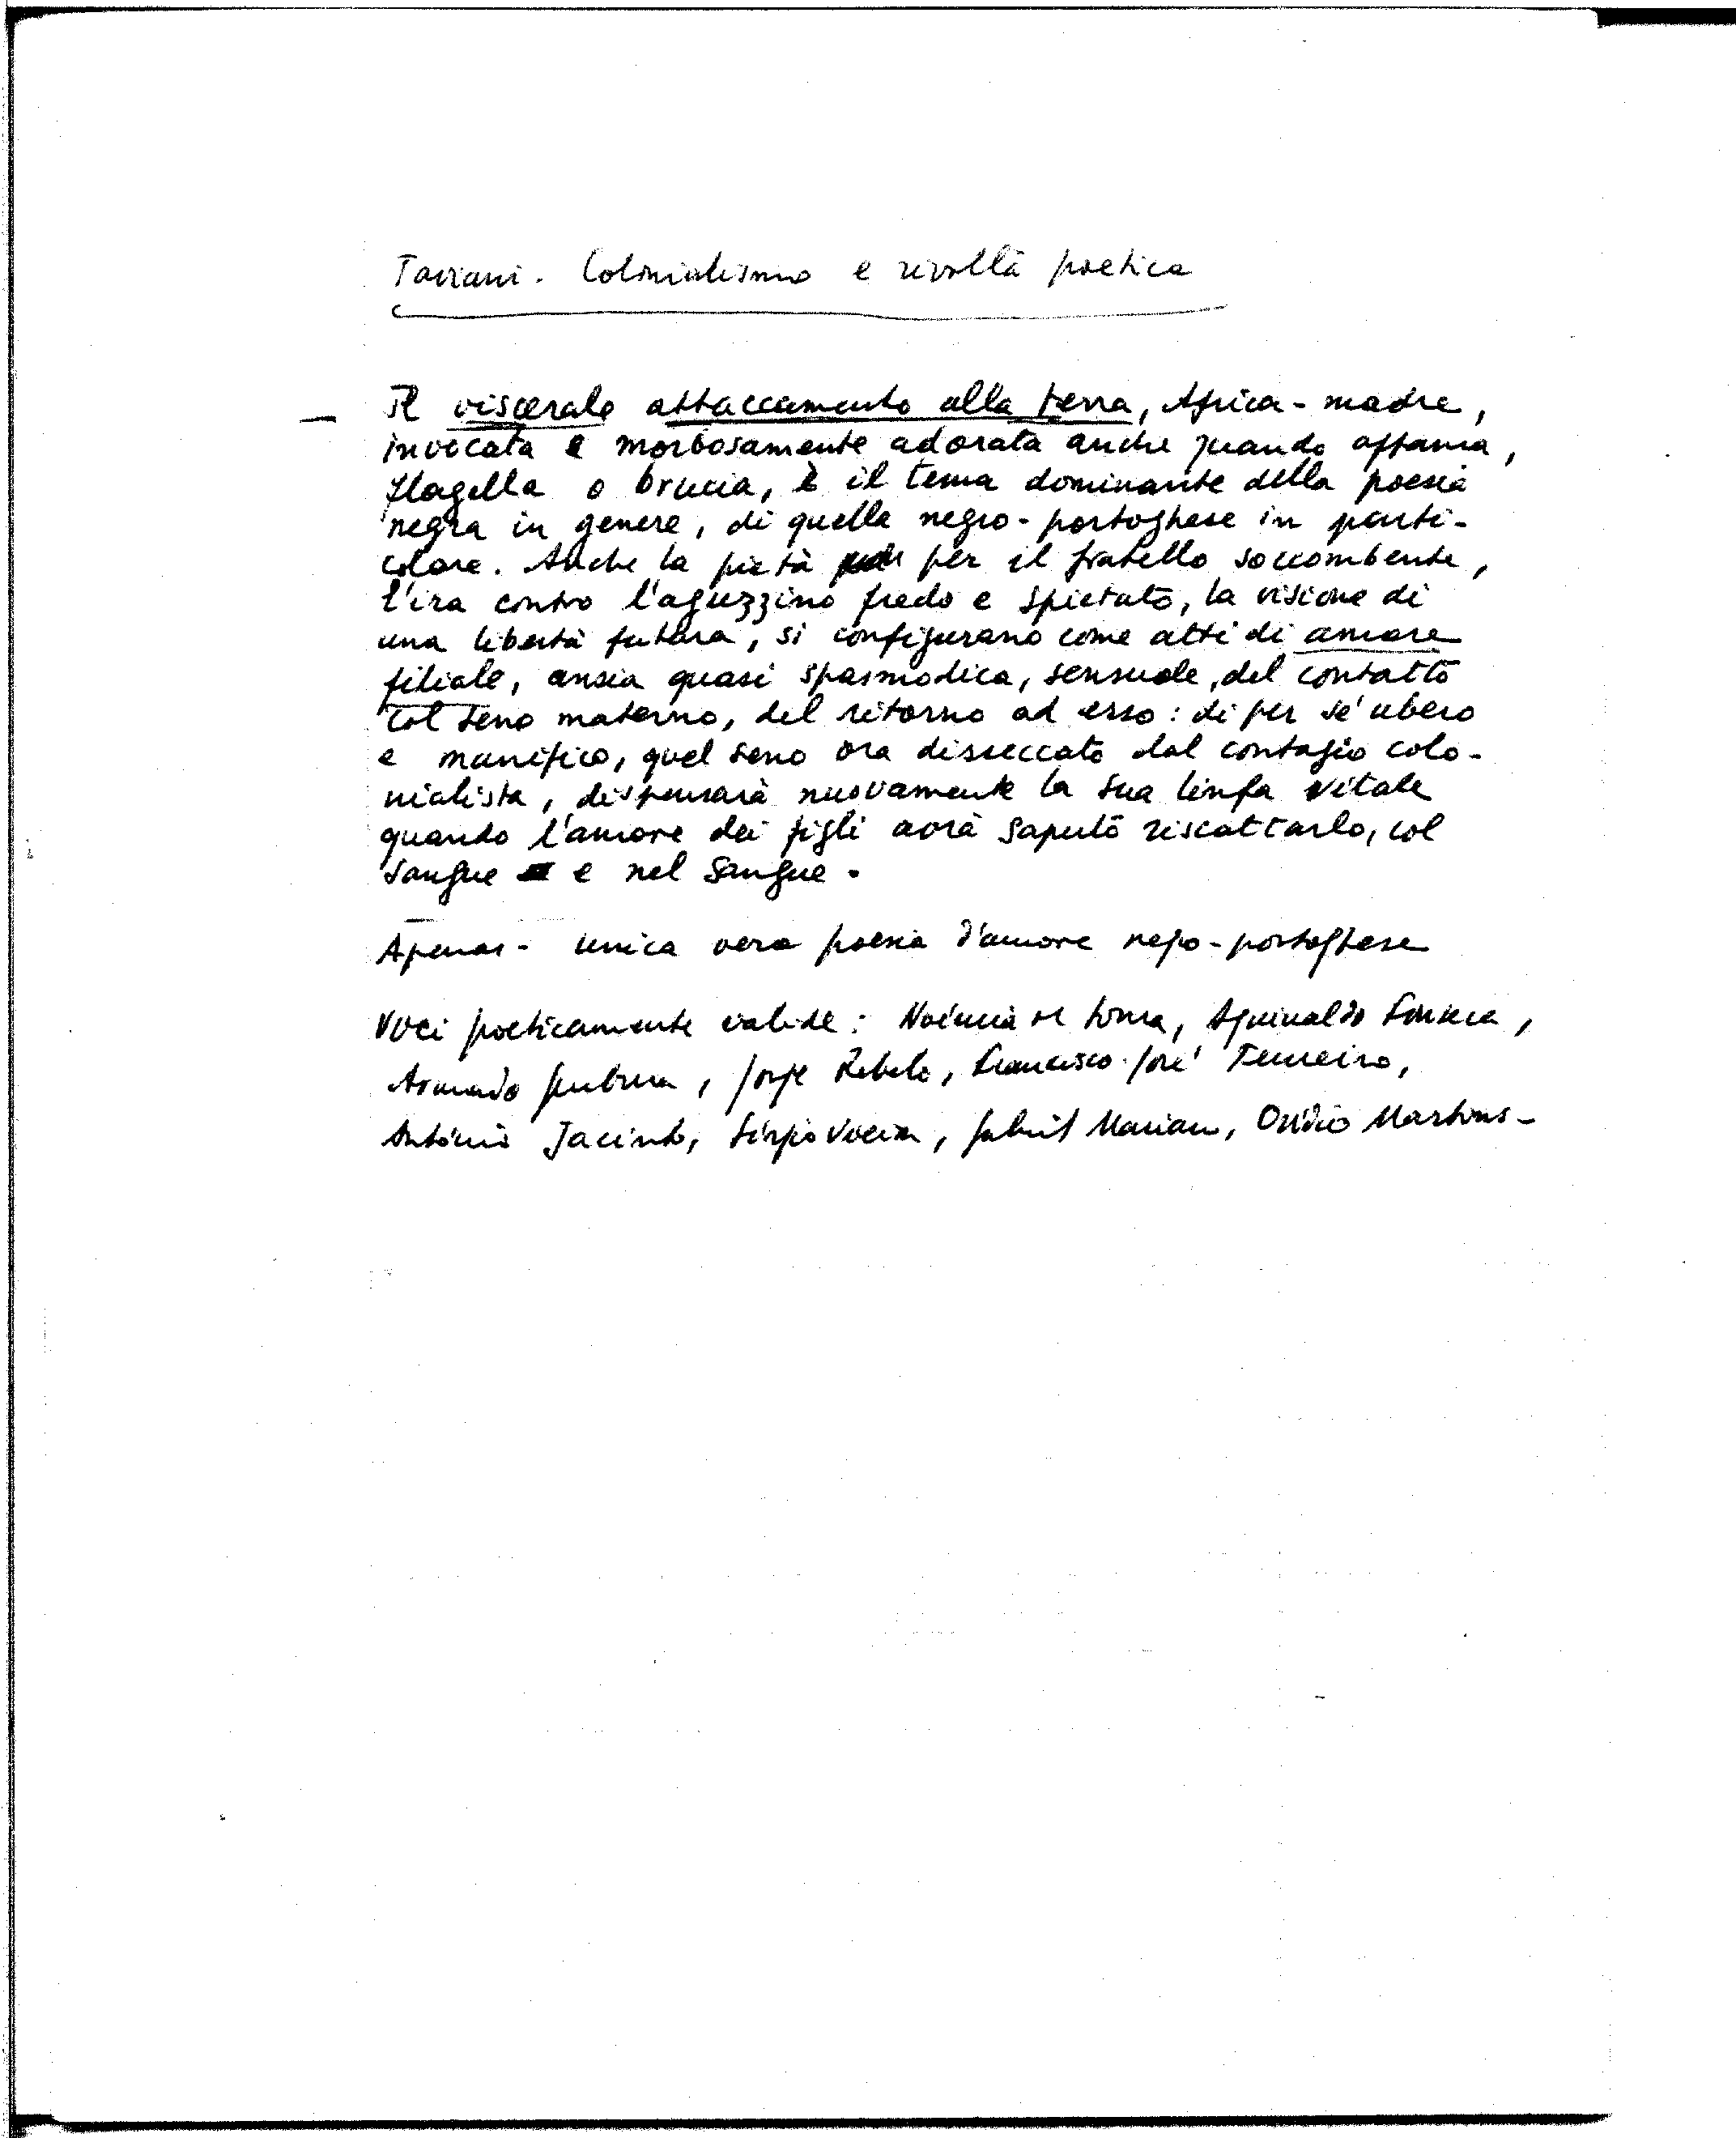 Taviani. Colonialismo e rivolta poetica
— Il viscerale attaccamento alla terra, Africa-madre,
invocata e morbosamente adorata anche quando affama,
flagella o brucia, è il tema dominante della poesia
negra in genere, di quella negro-portoghese in parti-
colare. Anche la pietà per il fratello soccombente,
l'ira contro l'aguzzino fredo e spietato, la visione di
una libertà futura, si configurano come atti di amore
filiale, ansia quasi spasmodica, sensuale, del contatto
col seno materno, del ritorno ad esso: di per sé ubero
e munifico, quel seno ora disseccato dal contagio colo-
nialista, dispensarà nuovamente la sua linfa vitale
quando l'amore dei figli avrà saputo riscattarlo, col
sangue e nel sangue.
Apenas - unica vera poesia d'amore negro-portoghese
Voci poeticamente valide: Noémia de Sousa, Aguinaldo Fonseca,
Armando Guebuza, Jorge Rebelo, Francisco-José Tenreiro,
António Jacinto, Sérgio Vieira, Gabriel Mariano, Ovídio Martins-